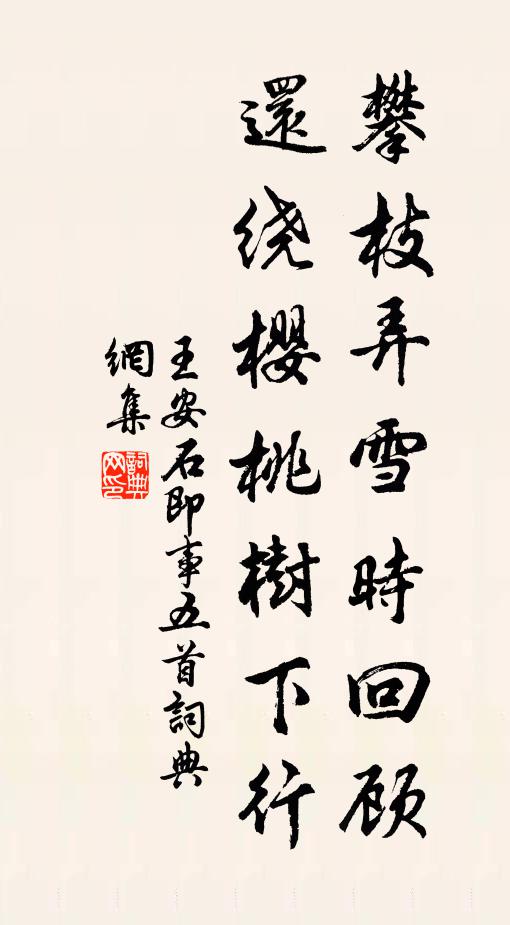 攀枝弄雪時回顾
還绕櫻桃樹下行
王安石即事五首詞典
網集
詞典網印